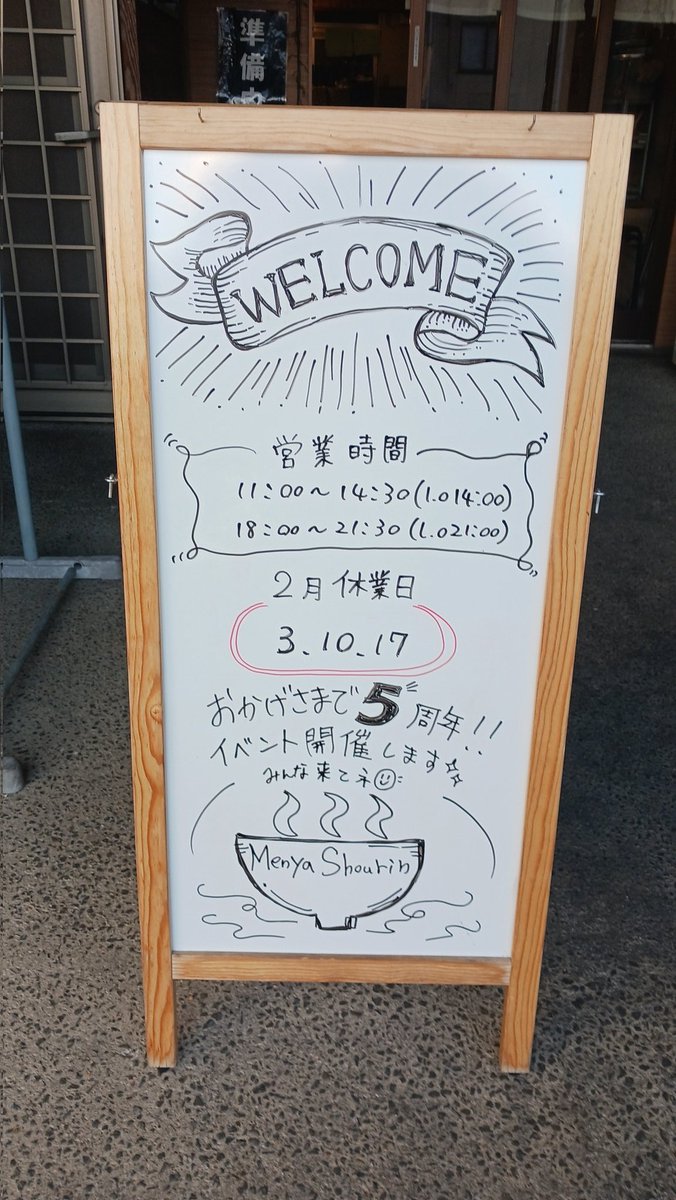 準備中
WELCOME
営業時間
11:00～14:30(l.o14:00)
18:00～21:30(l.o21:00)
2月休業日
3.10.17
おかげさまで5周年!!
イベント開催します
みんな来てネ
Menya Shourin